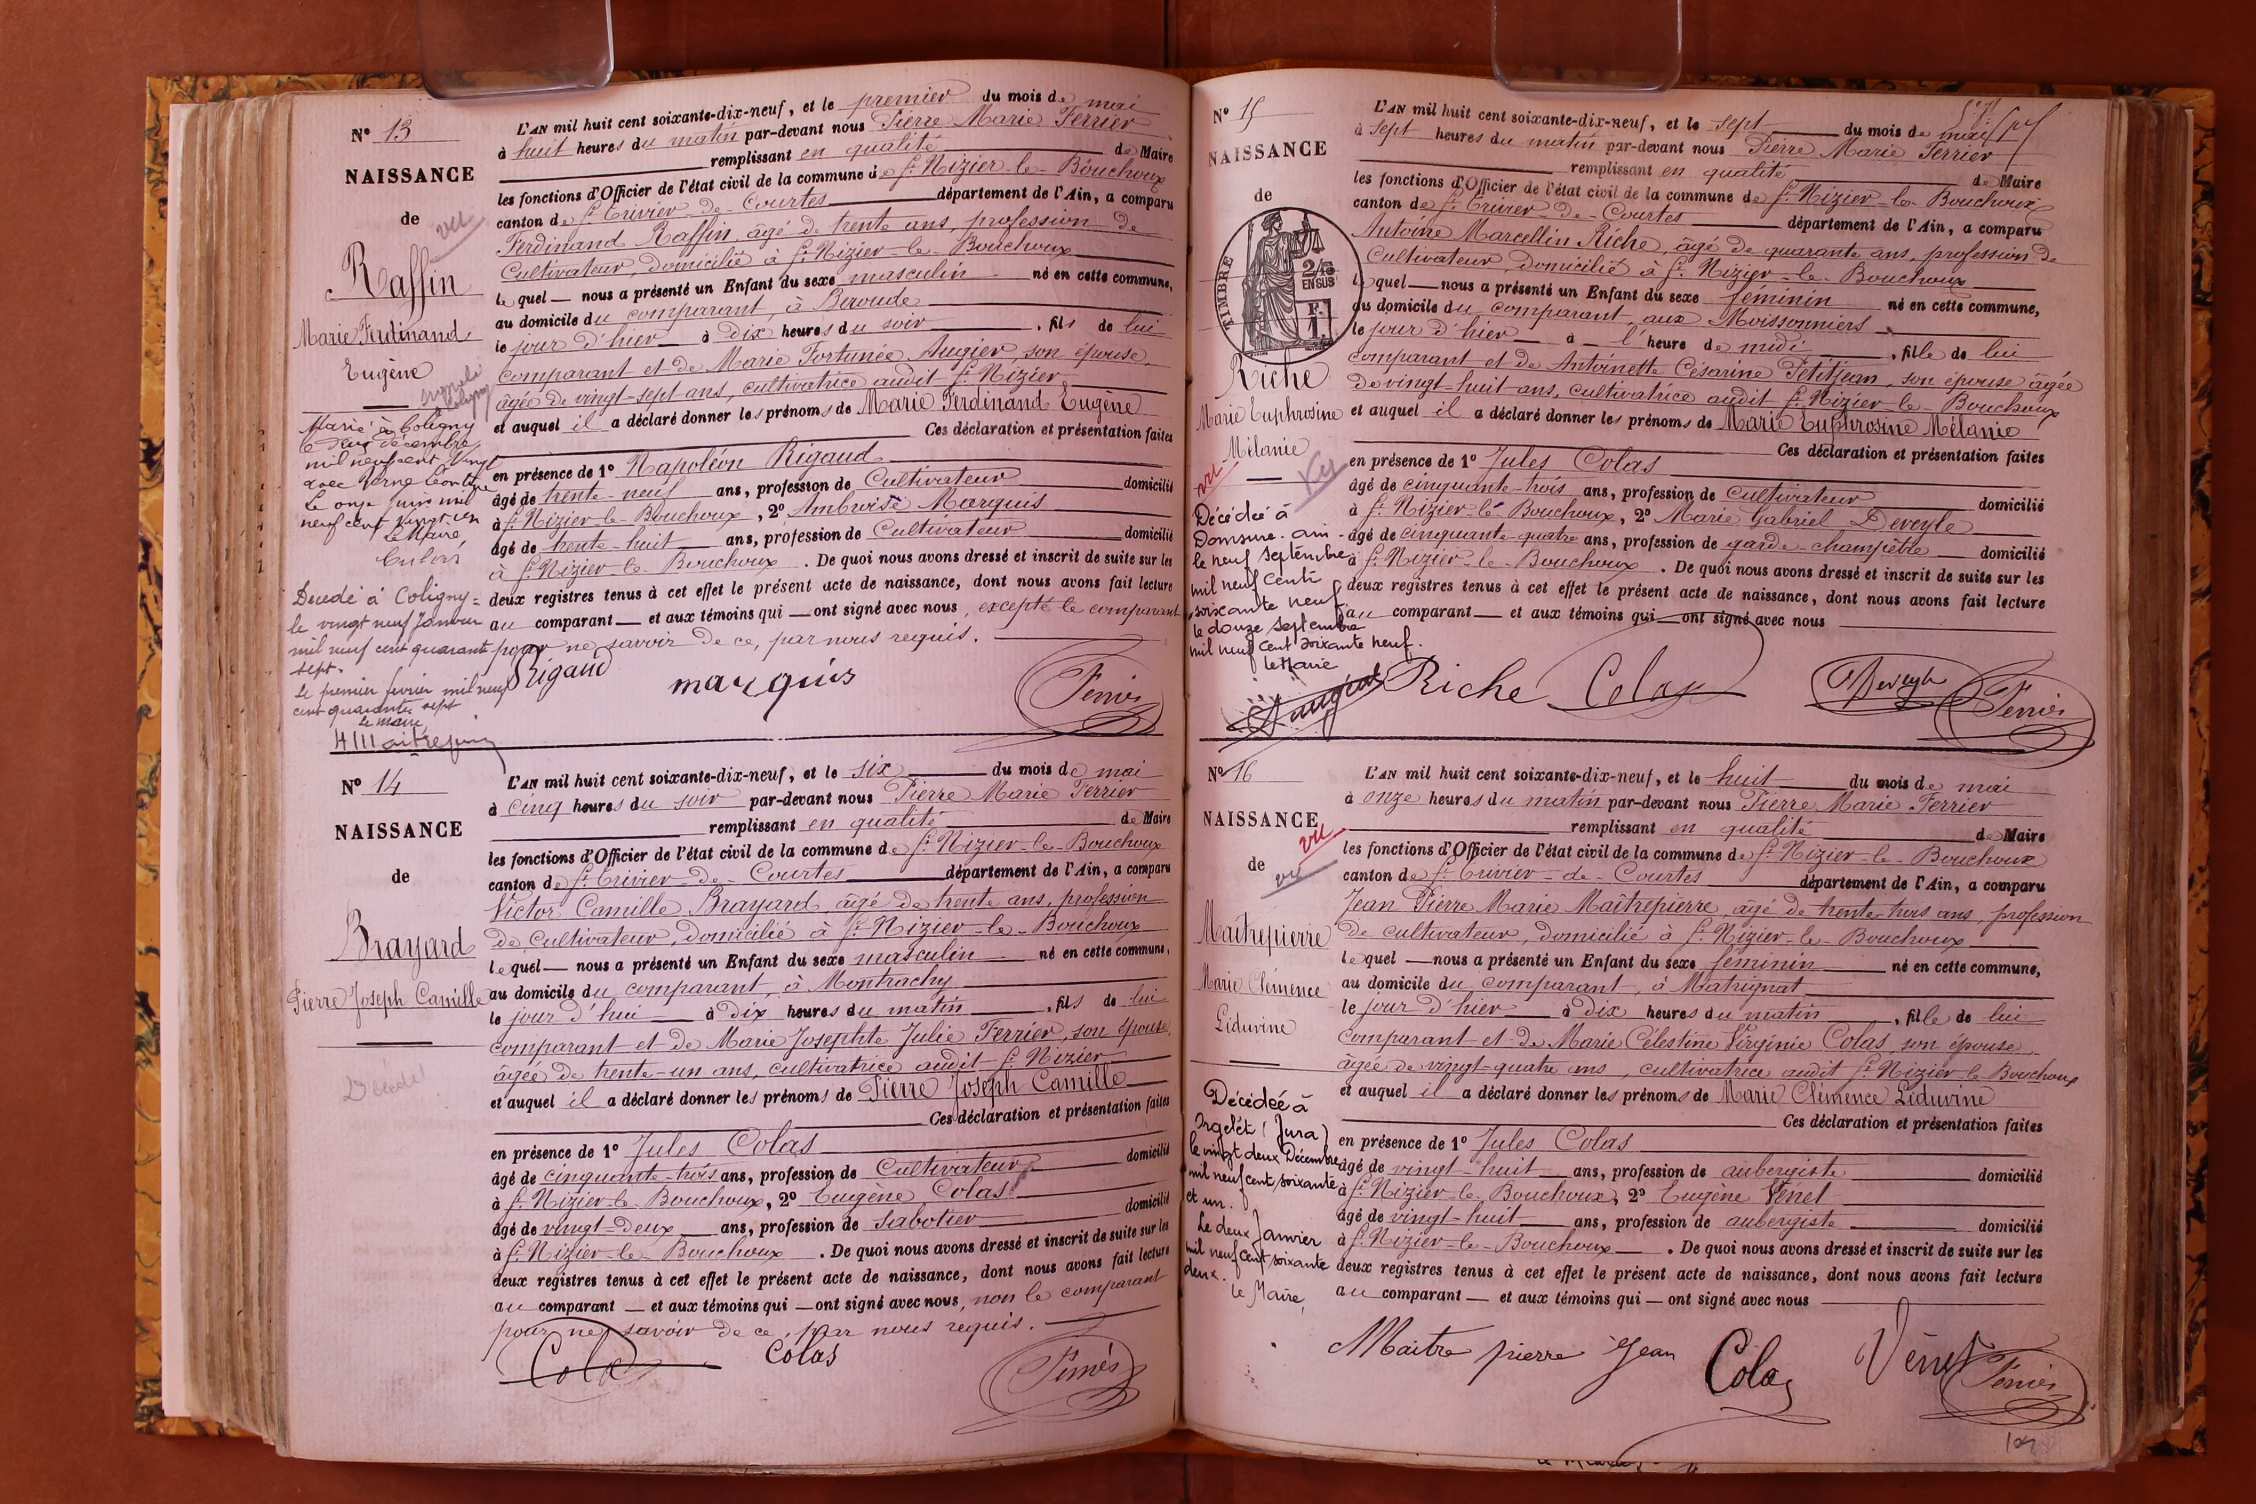 N° 13
NAISSANCE
de
vu
Raffin
Marie Ferdinand
Eugène
Marié à Coligny
le deux décembre
mil neuf cent vingt
avec
Le onze juin mil
neuf cent vingt un
Le Maire
Décédé à Coligny
le vingt neuf Janvier
mil neuf cent quarante
sept.
Le premier février mil neuf
cent quarante sept
le maire
L'AN mil huit cent soixante-dix-neuf, et le premier du mois de mai
à huit heures du matin par-devant nous Pierre Marie Ferrier
remplissant en qualité de Maire
les fonctions d'Officier de l'état civil de la commune de St Nizier-le-Bouchoux
canton de St Trivier-de-Courtes département de l'Ain, a comparu
Ferdinand Raffin âgé de trente ans, profession de
Cultivateur, domicilié à St Nizier-le-Bouchoux
lequel nous a présenté un Enfant du sexe masculin né en cette commune,
au domicile du comparant, à Beroude
le jour d'hier à dix heures du soir, fils de lui
comparant et de Marie Fortunée Augier, son épouse,
âgée de vingt-sept ans, cultivatrice audit St Nizier
et auquel il a déclaré donner les prénoms de Marie Ferdinand Eugène
Ces déclaration et présentation faites
en présence de 1° Napoléon Rigaud
âgé de trente-neuf ans, profession de Cultivateur domicilié
à St Nizier-le-Bouchoux, 2° Ambroise Marquis
âgé de trente-huit ans, profession de Cultivateur domicilié
à St Nizier-le-Bouchoux. De quoi nous avons dressé et inscrit de suite sur les
deux registres tenus à cet effet le présent acte de naissance, dont nous avons fait lecture
au comparant et aux témoins qui ont signé avec nous, excepté le comparant
pour ne savoir de ce, par nous requis.
Rigaud marquis Ferrier
N° 14
NAISSANCE
de
Brayard
Pierre Joseph Camille
Décédé
L'AN mil huit cent soixante-dix-neuf, et le six du mois de mai
à cinq heures du soir par-devant nous Pierre Marie Ferrier
remplissant en qualité de Maire
les fonctions d'Officier de l'état civil de la commune de St Nizier-le-Bouchoux
canton de St Trivier-de-Courtes département de l'Ain, a comparu
Victor Camille Brayard, âgé de trente ans, profession
de Cultivateur, domicilié à St Nizier-le-Bouchoux
lequel nous a présenté un Enfant du sexe masculin né en cette commune,
au domicile du comparant, à Montrachy
le jour d'hui à dix heures du matin, fils de lui
comparant et de Marie Josephte Julie Ferrier, son épouse
âgée de trente-un ans, cultivatrice audit St Nizier
et auquel il a déclaré donner les prénoms de Pierre Joseph Camille
Ces déclaration et présentation faites
en présence de 1° Jules Colas
âgé de cinquante-trois ans, profession de Cultivateur domicilié
à St Nizier-le-Bouchoux, 2° Eugène Colas
âgé de vingt-deux ans, profession de Sabotier domicilié
à St Nizier-le-Bouchoux. De quoi nous avons dressé et inscrit de suite sur les
deux registres tenus à cet effet le présent acte de naissance, dont nous avons fait lecture
au comparant et aux témoins qui ont signé avec nous, non le comparant
pour ne savoir de ce, par nous requis.
Colas Colas Ferrier
N° 15
NAISSANCE
de
TIMBRE
2/10
EN SUS
Riche
Marie Euphrosine
Mélanie
vu
vu
Décédée à
Domsure - ain -
le neuf Septembre
mil neuf cent
soixante neuf
le douze septembre
mil neuf cent soixante neuf.
le Maire
L'AN mil huit cent soixante-dix-neuf, et le sept du mois de mai
à sept heures du matin par-devant nous Pierre Marie Ferrier
remplissant en qualité de Maire
les fonctions d'Officier de l'état civil de la commune de St Nizier-le-Bouchoux
canton de St Trivier-de-Courtes département de l'Ain, a comparu
Antoine Marcellin Riche, âgé de quarante ans, profession de
Cultivateur, domicilié à St Nizier-le-Bouchoux
lequel nous a présenté un Enfant du sexe féminin né en cette commune,
au domicile du comparant aux Moissonniers
le jour d'hier à l'heure de midi, fille de lui
comparant et de Antoinette Césarine Petitjean, son épouse âgée
de vingt-huit ans, cultivatrice audit St Nizier-le-Bouchoux
et auquel il a déclaré donner les prénoms de Marie Euphrosine Mélanie
Ces déclaration et présentation faites
en présence de 1° Jules Colas
âgé de cinquante-trois ans, profession de cultivateur domicilié
à St Nizier-le-Bouchoux, 2° Marie Gabriel Deveyle
âgé de cinquante-quatre ans, profession de garde-champêtre domicilié
à St Nizier-le-Bouchoux. De quoi nous avons dressé et inscrit de suite sur les
deux registres tenus à cet effet le présent acte de naissance, dont nous avons fait lecture
au comparant et aux témoins qui ont signé avec nous
Riche Colas Deveyle Ferrier
N° 16
NAISSANCE
de
vu
vu
Maîtrepierre
Marie Clémence
Liduvine
Décédée à
Orgelet (Jura)
le vingt deux Décembre
mil neuf cent soixante
et un.
Le deux Janvier
mil neuf cent soixante
deux.
le Maire
L'AN mil huit cent soixante-dix-neuf, et le huit du mois de mai
à onze heures du matin par-devant nous Pierre Marie Ferrier
remplissant en qualité de Maire
les fonctions d'Officier de l'état civil de la commune de St Nizier-le-Bouchoux
canton de St Trivier-de-Courtes département de l'Ain, a comparu
Jean Pierre Marie Maîtrepierre, âgé de trente-trois ans, profession
de cultivateur, domicilié à St Nizier-le-Bouchoux
lequel nous a présenté un Enfant du sexe féminin né en cette commune,
au domicile du comparant, à Matrignat
le jour d'hier à dix heures du matin, fille de lui
comparant et de Marie Célestine Virginie Colas, son épouse
âgée de vingt-quatre ans, cultivatrice audit St Nizier-le-Bouchoux
et auquel il a déclaré donner les prénoms de Marie Clémence Liduvine
Ces déclaration et présentation faites
en présence de 1° Jules Colas
âgé de vingt-huit ans, profession de aubergiste domicilié
à St Nizier-le-Bouchoux, 2° Eugène Vénet
âgé de vingt-huit ans, profession de aubergiste domicilié
à St Nizier-le-Bouchoux. De quoi nous avons dressé et inscrit de suite sur les
deux registres tenus à cet effet le présent acte de naissance, dont nous avons fait lecture
au comparant et aux témoins qui ont signé avec nous
Maitre pierre Jean Colas Vénet Ferrier